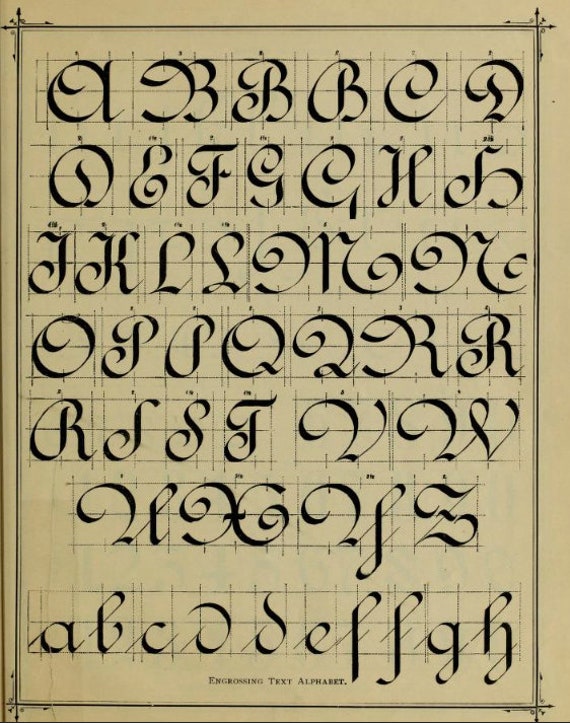 A B B B C D
D E F G G H H
I K L L M N
O P P Q Q R R
R S S T V W
U X Y Z
a b c d d e f f g h
ENGROSSING TEXT ALPHABET.